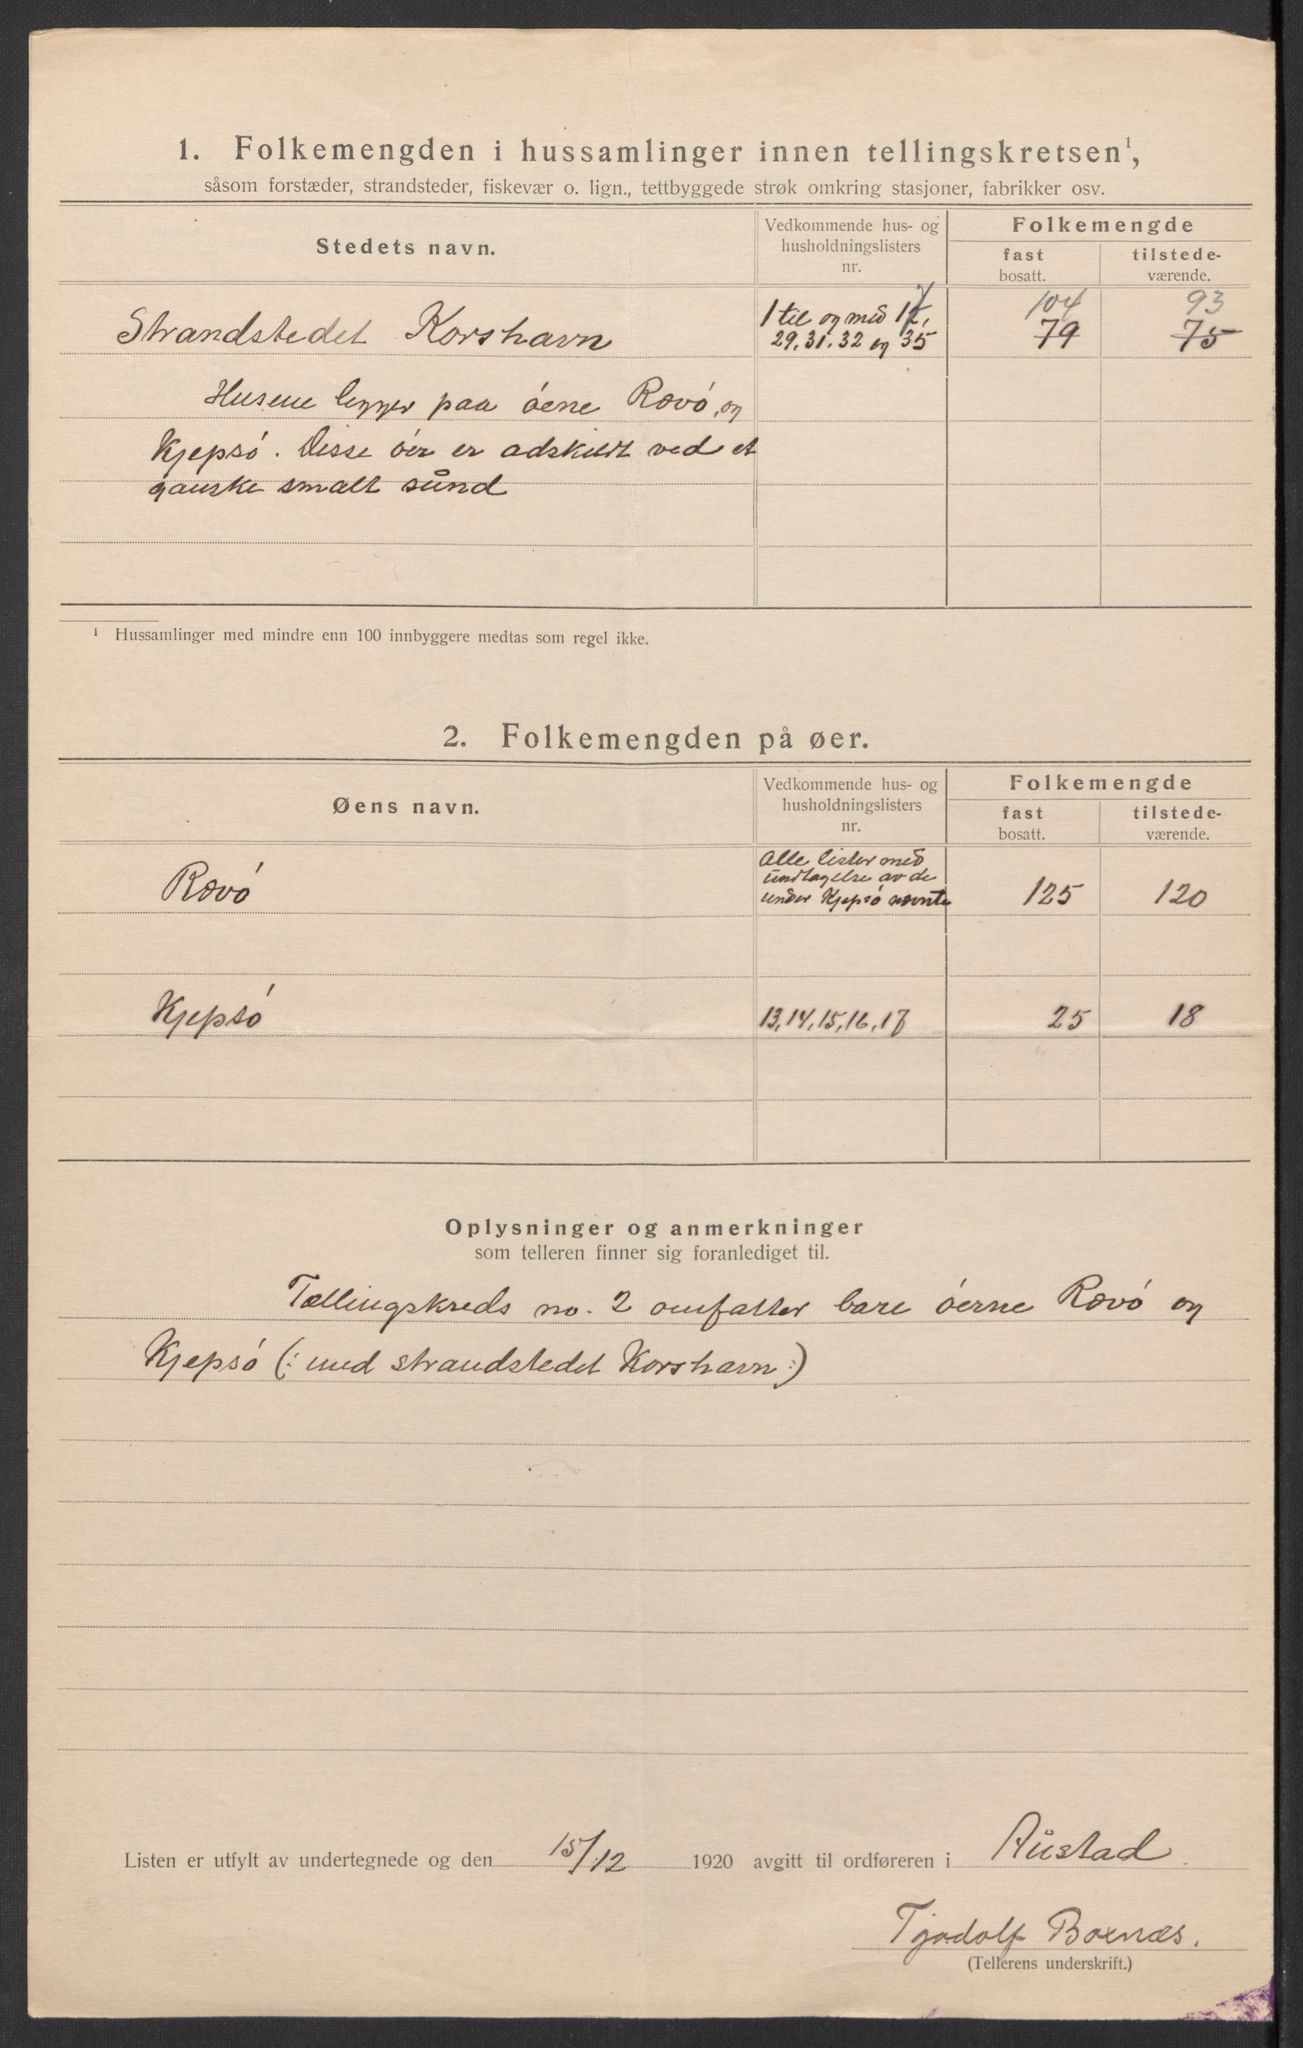 1. Folkemengden i hussamlinger innen tellingskretsen¹,
såsom forstæder, strandsteder, fiskevær o. lign., tettbyggede strøk omkring stasjoner, fabrikker osv.
Stedets navn.
Vedkommende hus- og
husholdningslisters
nr.
Folkemengde
fast
bosatt.
tilstede-
værende.
Strandstedet Korshavn
1 til og med 17,
29, 31, 32 og 35
104
79
93
75
Husene ligger paa óene Rævó, og
Kjepsó. Disse óer er adskildt ved et
ganske smalt sund
¹ Hussamlinger med mindre enn 100 innbyggere medtas som regel ikke.
2. Folkemengden på øer.
Øens navn.
Vedkommende hus- og
husholdningslisters
nr.
Folkemengde
fast
bosatt.
tilstede-
værende.
Rævó
Alle lister med
undtagelse av de
under Kjepsó nævnte
125
120
Kjepsó
13, 14, 15, 16, 17
25
18
Oplysninger og anmerkninger
som telleren finner sig foranlediget til.
Tællingskreds no. 2 omfatter bare óerne Rævó og
Kjepsó (: med strandstedet Korshavn :)
Listen er utfylt av undertegnede og den 15/12 1920 avgitt til ordføreren i Austad.
Tjodolf Boxnæs.
(Tellerens underskrift.)